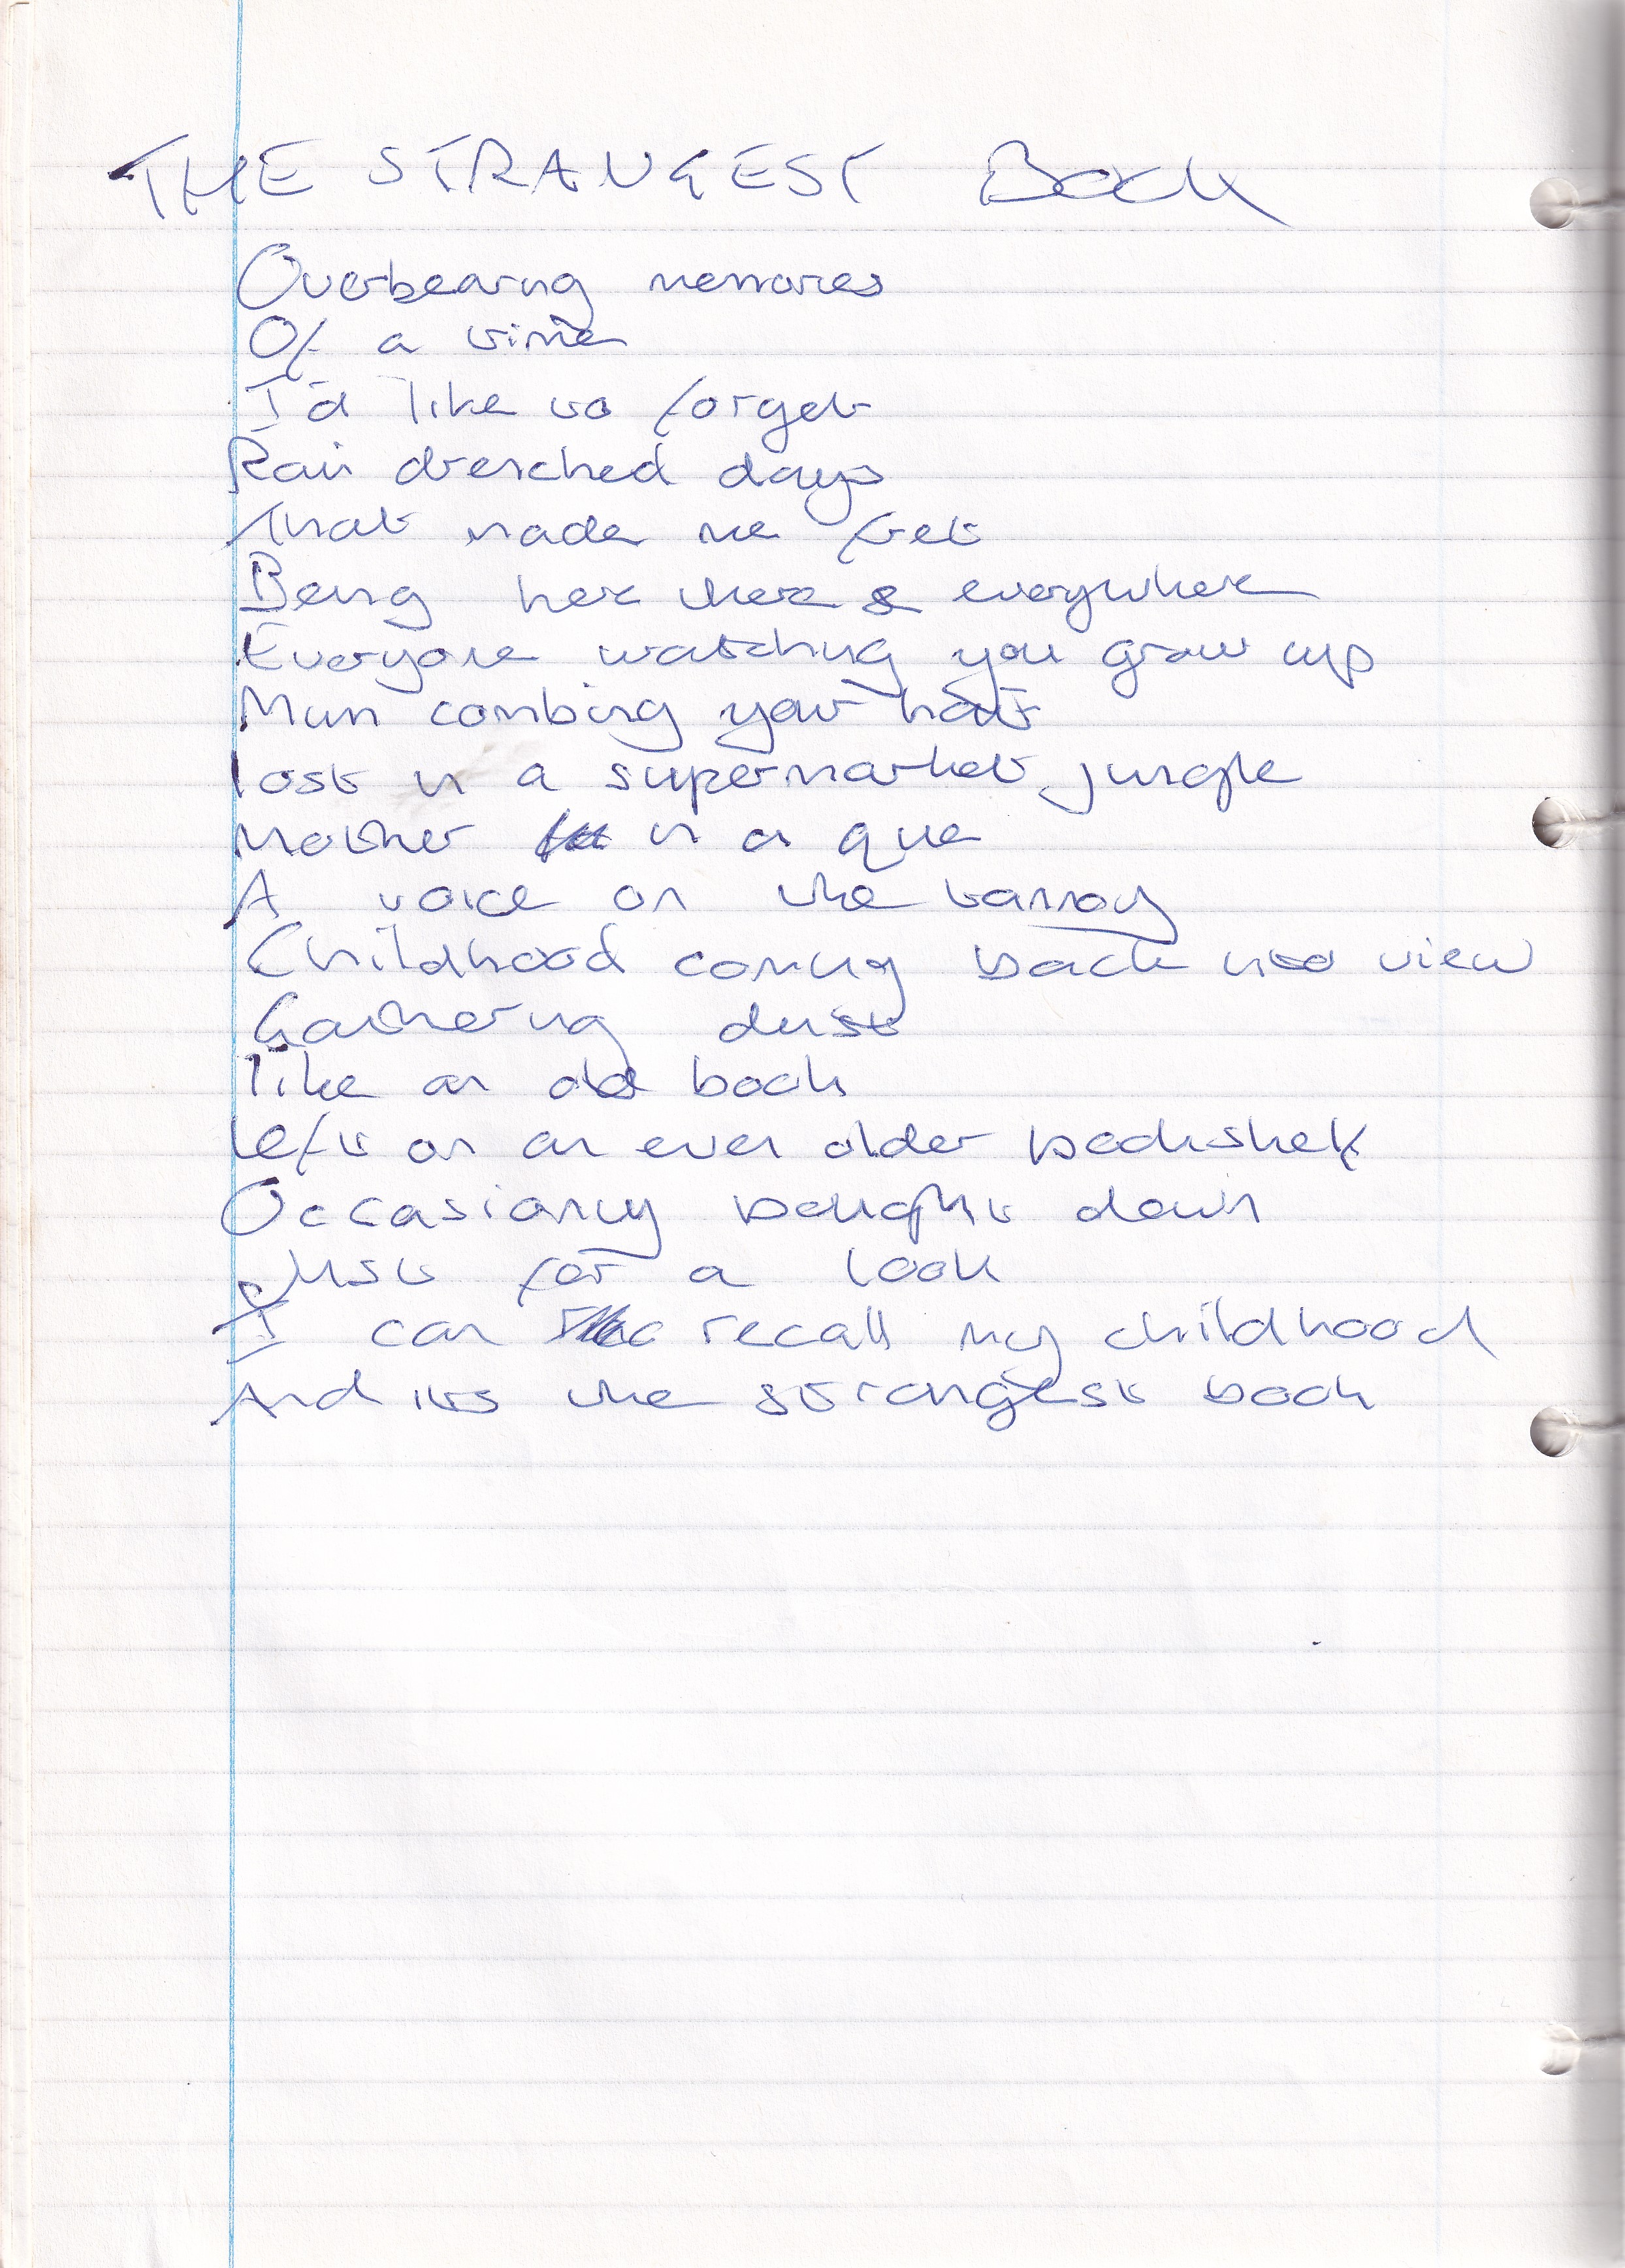 THE STRANGEST Book
Overbearing memories
Of a time
I'd like to forget
Rain drenched days
That made me fret
Being here there & everywhere
Everyone watching you grow up
Mum combing your hair
lost in a supermarket jungle
Mother in a que
A voice on the tannoy
Childhood coming back into view
Gathering dust
like an old book
left on an even older bookshelf
Occasionly bought down
Just for a look
I can recall my childhood
And its the strangest book